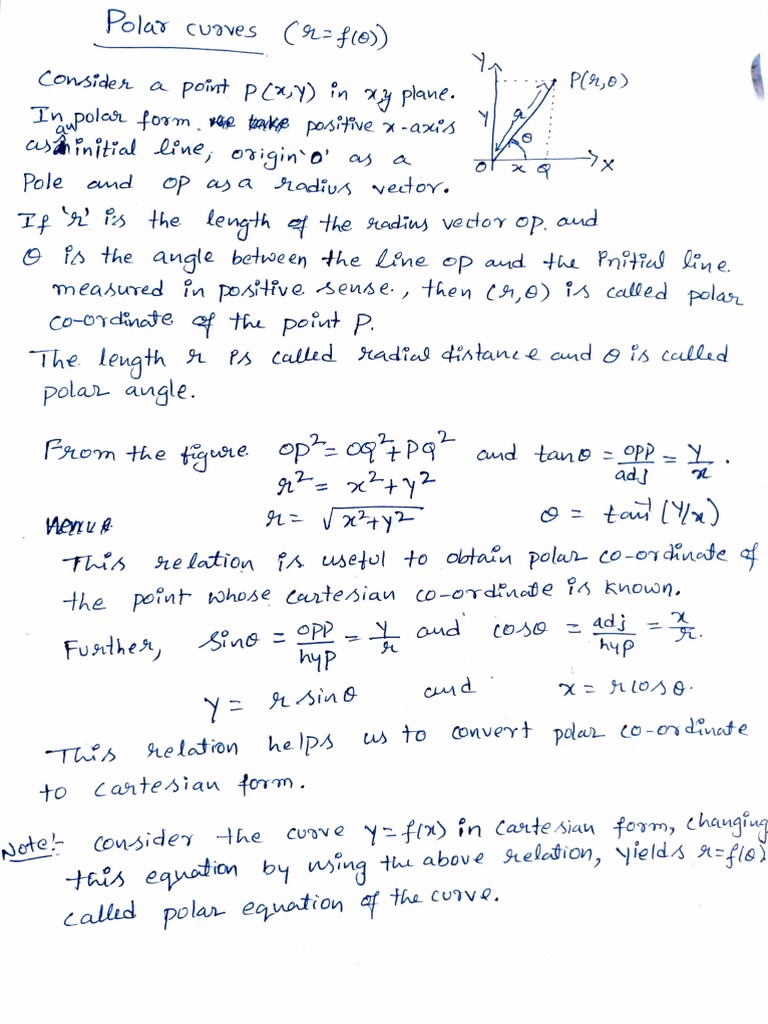 Polar curves (r = f(θ))
Consider a point P(x,y) in x,y plane.
In polar form positive x-axis
as an initial line, origin 'O' as a
Pole and OP as a radius vector.
Y
P(r,θ)
Y
r
θ
O
x
Q
X
If 'r' is the length of the radius vector OP. and
θ is the angle between the line OP and the initial line.
measured in positive sense., then (r,θ) is called polar
co-ordinate of the point P.
The length r is called radial distance and θ is called
polar angle.
From the figure OP² = OQ² + PQ² and tanθ = opp/adj = Y/x.
r² = x² + y²
r = √(x²+y²) θ = tan⁻¹(Y/x)
This relation is useful to obtain polar co-ordinate of
the point whose cartesian co-ordinate is known.
Further, sinθ = opp/hyp = Y/r and cosθ = adj/hyp = x/r.
Y = r sinθ and x = r cosθ.
This relation helps us to convert polar co-ordinate
to cartesian form.
Note:- Consider the curve y = f(x) in Cartesian form, changing
this equation by using the above relation, yields r = f(θ)
called polar equation of the curve.